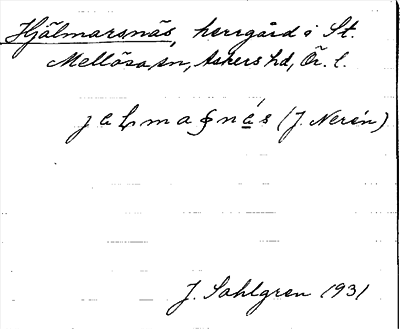 Hjälmarsnäs, herrgård i St.
Mellösa sn, Askers hd, Ör. l.
(J. Nerén)
J. Sahlgren 1931